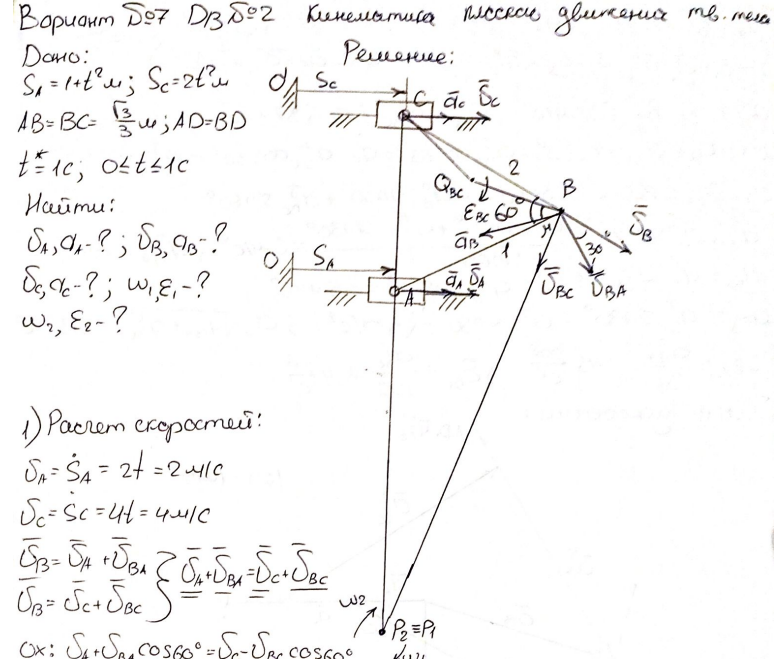 Вариант №7 ДЗ №2 Кинематика плоского движения тв. тела
Дано:
Решение:
S_A = 1+t² м; S_C = 2t² м
AB=BC= √3/3 м; AD=BD
t* = 1c; 0≤t≤1c
Найти:
υ_A, a_A -?; υ_B, a_B -?
υ_C, a_C -?; ω₁, ε₁ -?
ω₂, ε₂ -?
O₁
S_C
C
a̅_C
υ̅_C
2
Q_BC
ε_BC
60°
B
a̅_B
1
30°
υ̅_B
υ̅_BC
υ̅_BA
O
S_A
A
a̅_A
υ̅_A
1) Расчет скоростей:
υ_A = Ṡ_A = 2t = 2 м/с
υ_C = Ṡ_C = 4t = 4 м/с
υ̅_B = υ̅_A + υ̅_BA
υ̅_B = υ̅_C + υ̅_BC
υ̅_A + υ̅_BA = υ̅_C + υ̅_BC
ω₂
P₂≡P₁
Ox: υ_A + υ_BA cos60° = υ_C - υ_BC cos60°